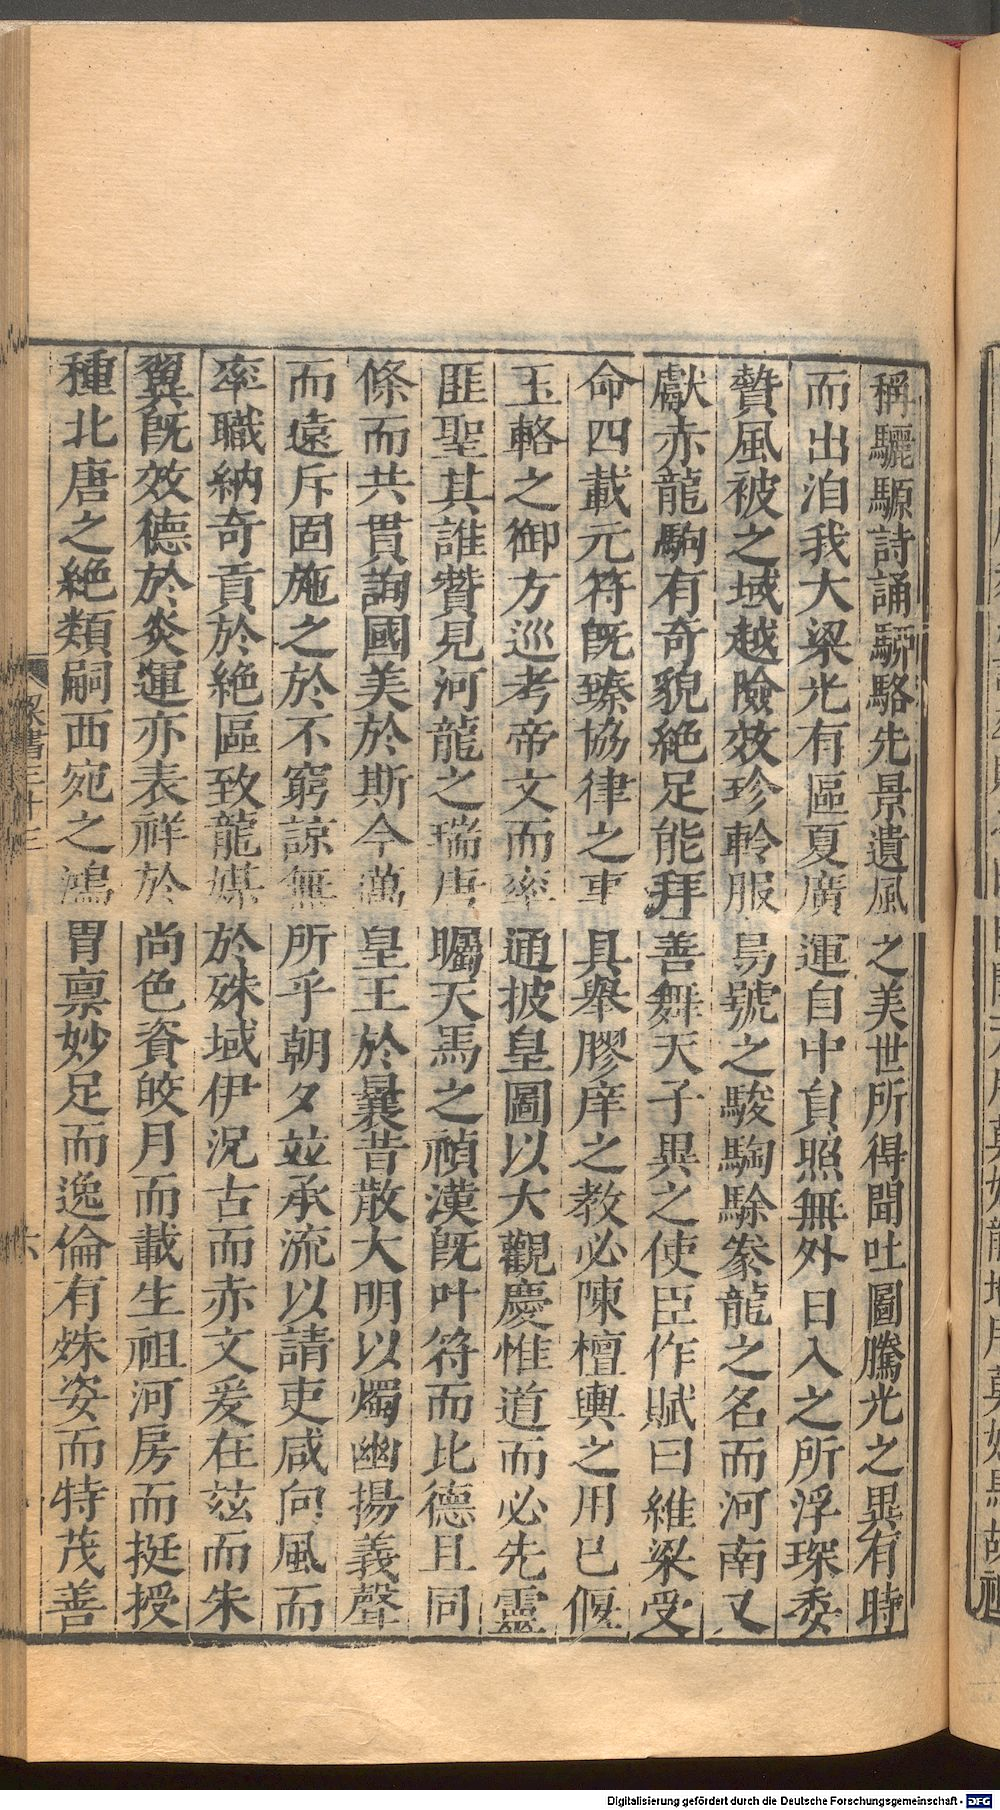 稱驪騵詩誦駵駱先景遺風之美世所得聞吐圖騰光之異有時
而出洎我大梁光有區夏廣運自中負照無外日入之所浮琛委
贄風被之域越險效珍軨服易號之駿騊駼豢龍之名而河南又
獻赤龍駒有奇貌絕足能拜善舞天子異之使臣作賦曰維梁受
命四載元符旣臻協律之事具舉膠庠之教必陳檀輿之用已偃
玉輅之御方巡考帝文而率通披皇圖以大觀慶惟道而必先靈
匪聖其誰贊見河龍之瑞唐矚天馬之禎漢旣叶符而比德且同
條而共貫詢國美於斯今邁皇王於曩昔散大明以燭幽揚義聲
而遠斥固施之於不窮諒無所乎朝夕並承流以請吏咸向風而
率職納奇貢於絕區致龍媒於殊域伊況古而赤文爰在茲而朱
翼旣效德於炎運亦表祥於尚色資皎月而載生祖河房而挺授
種北唐之絕類嗣西宛之鴻胄禀妙足而逸倫有姝姿而特茂善
梁書三十三
六
Digitalisierung gefördert durch die Deutsche Forschungsgemeinschaft - DFG